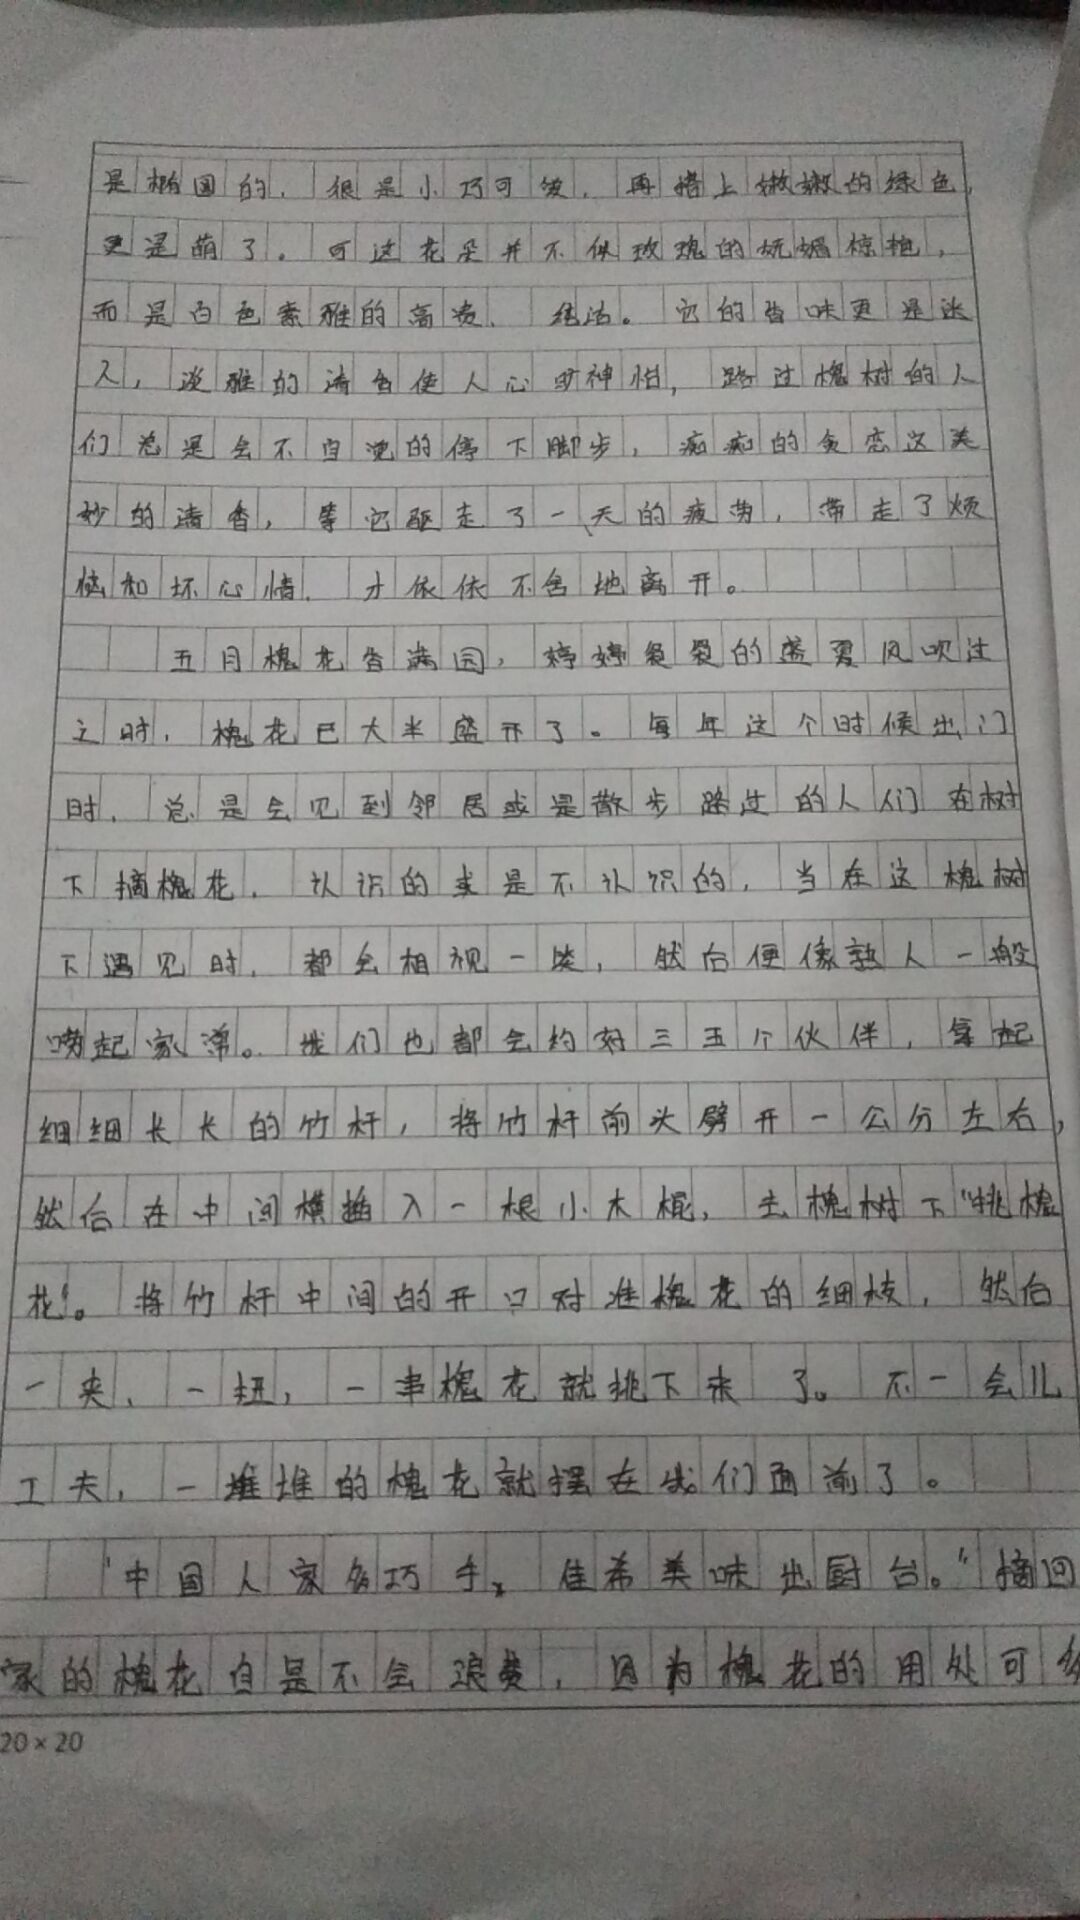 是椭圆的，很是小巧可爱，再搭上嫩嫩的绿色，
更是萌了。可这花朵并不似玫瑰的妩媚惊艳，
而是白色素雅的高贵、纯洁。它的香味更是迷
人，淡雅的清香使人心旷神怡，路过槐树的人
们总是会不自觉的停下脚步，痴痴的贪恋这美
妙的清香，等它驱走了一天的疲劳，带走了烦
恼和坏心情，才依依不舍地离开。
五月槐花香满园，婷婷袅袅的盛夏风吹过
之时，槐花已大半盛开了。每年这个时候出门
时，总是会见到邻居或是散步路过的人们在树
下摘槐花，认识的或是不认识的，当在这槐树
下遇见时，都会相视一笑，然后便像熟人一般
唠起家常。我们也都会约好三五个伙伴，拿起
细细长长的竹杆，将竹杆前头劈开一公分左右，
然后在中间横插入一根小木棍，去槐树下“挑槐
花”。将竹杆中间的开口对准槐花的细枝，然后
一夹，一扭，一串槐花就挑下来了。不一会儿
工夫，一堆堆的槐花就摆在我们面前了。
“中国人家多巧手，佳希美味出厨台。”摘回
家的槐花自是不会浪费，因为槐花的用处可多
20×20